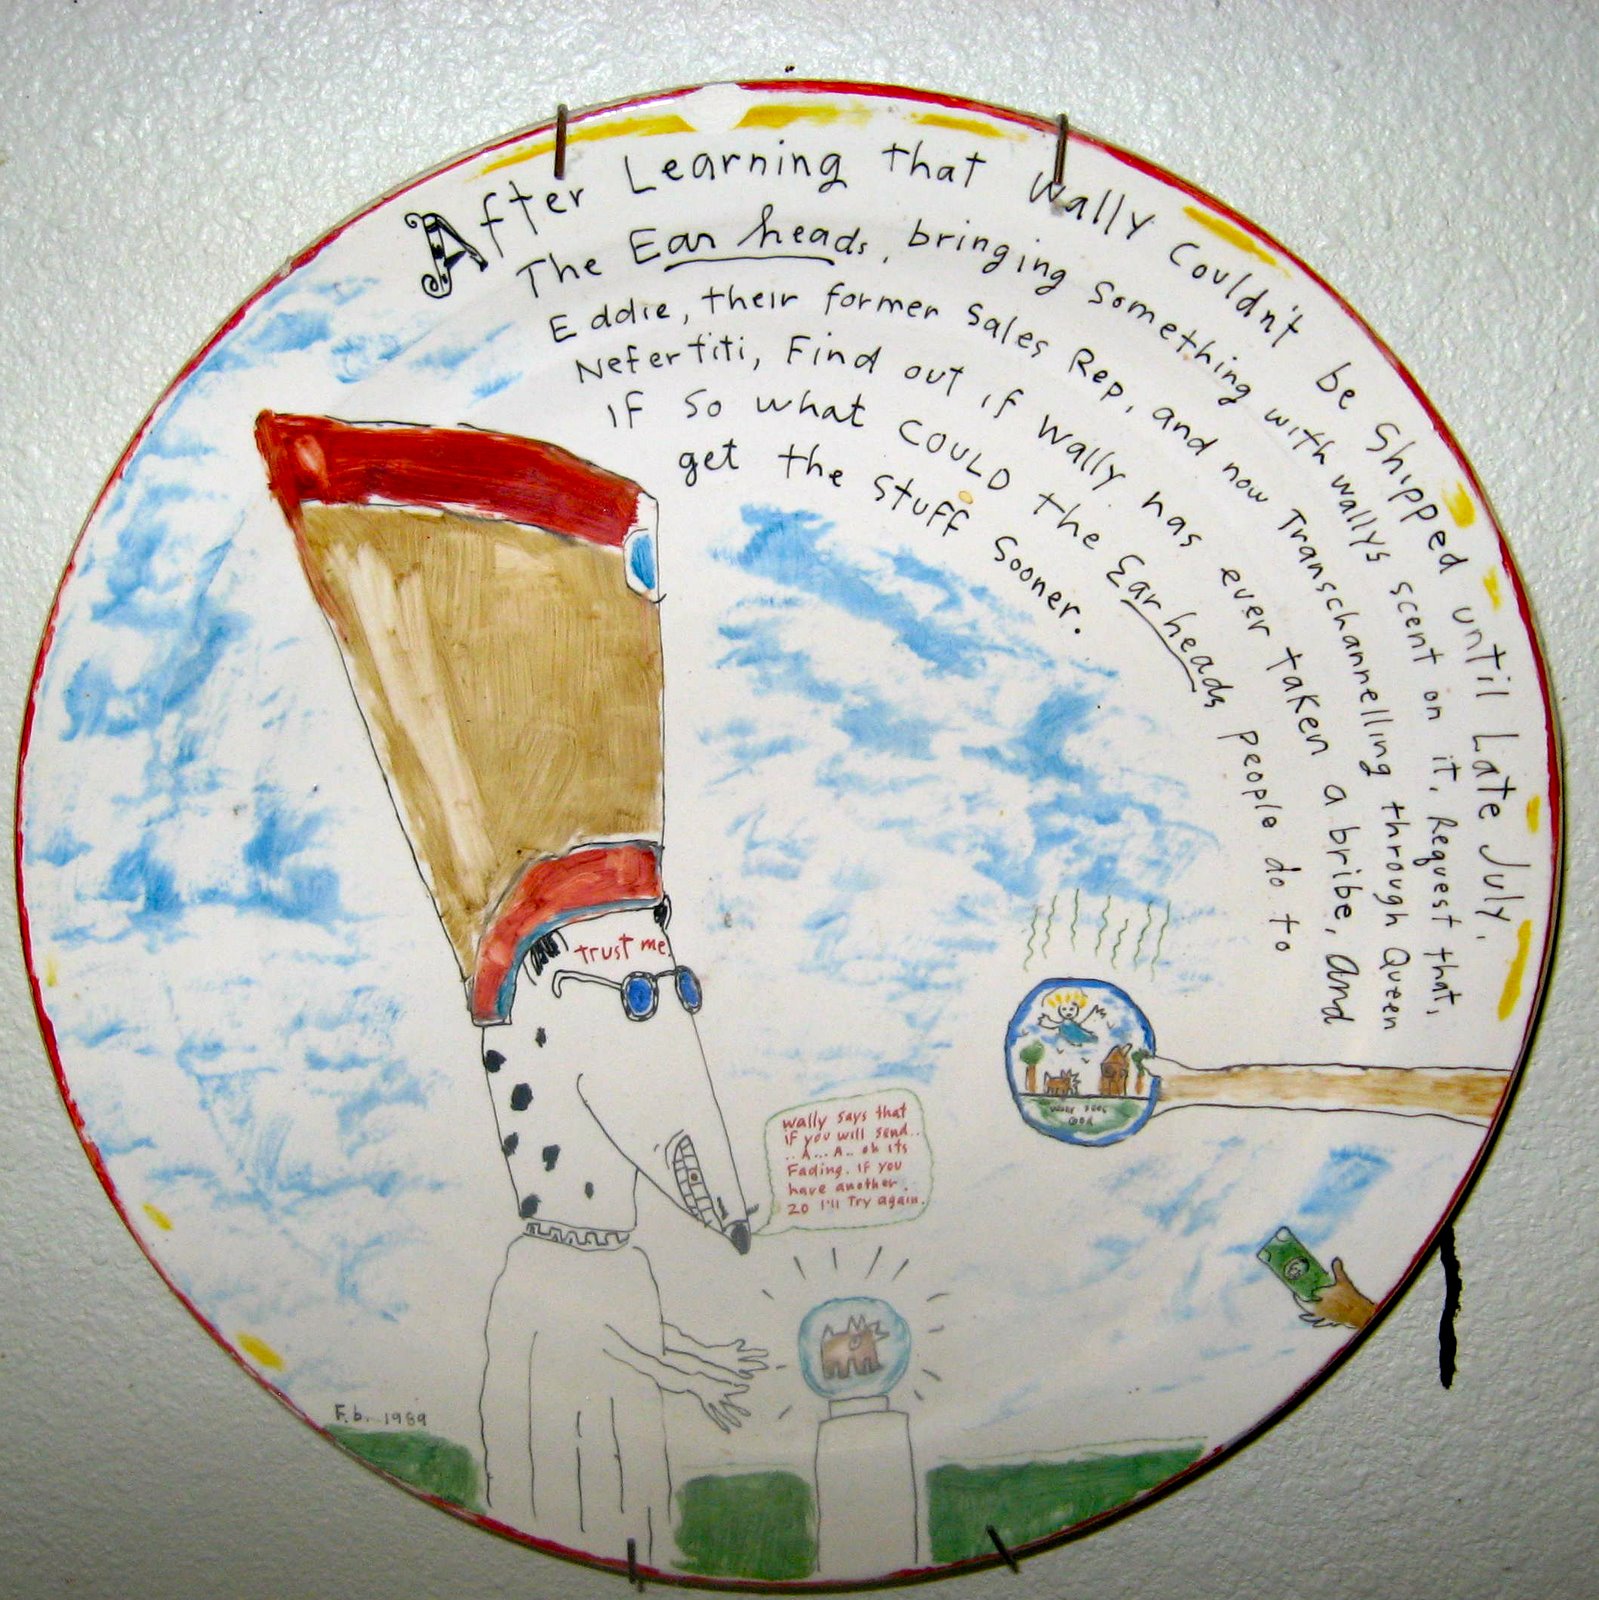 After Learning that Wally Couldn't be Shipped until Late July.
The Ear heads, bringing something with wallys scent on it. Request that,
Eddie, their former Sales Rep, and now Transchannelling through Queen
Nefertiti, Find out if Wally has ever taken a bribe, and
IF so what COULD the Ear heads people do to
get the stuff sooner.
trust me.
wally says that
if you will send..
..A...A.. oh its
Fading. If you
have another
20 I'll Try again.
F.b. 1989